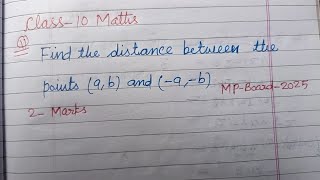 Class-10 Maths
① Find the distance between the
points (a,b) and (-a,-b)
MP-Board-2025
2- Marks